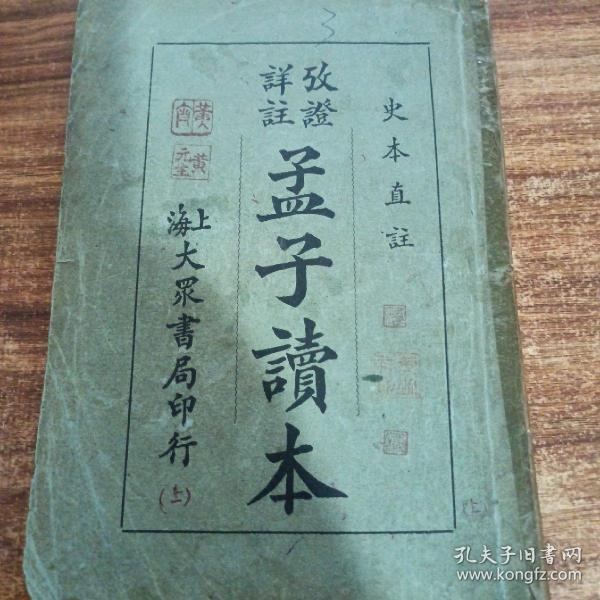 3
史本直註
攷證
詳註
孟子讀本
上海大眾書局印行
(上)
黄
元生
(上)
孔夫子旧书网
www.kongfz.com